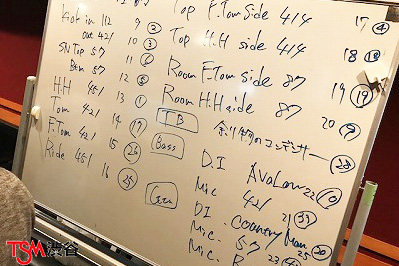 Kick in 112 9 ②
out 421 10 ③
SN Top 57 11
Btm 57 12 ⑧
H.H 451 13 ①
Tom 421 14 ⑰
F.Tom 421 15 ㉖
Ride 451 16 ㉕
Top F.Tom Side 414 17 ④
Top H.H side 414 18
Room F.Tom side 87 19 ⑲
Room H.H side 87 20
TB
余り物のコンデンサー
Bass
D.I AVaLon 22 ⑩
Mic 421 21 ㉝
DI Country Man 25 ⑳
Mic. 57
Mic.
TSM渋谷